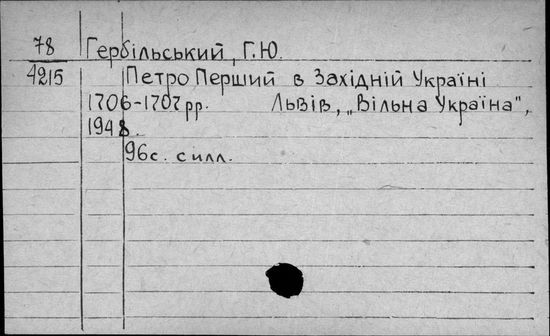 78 Гербільський, Г.Ю.
4215 Петро Перший в Західній Україні
1706-1707 рр. Львів, „Вільна Україна",
1948.
96с. с илл.